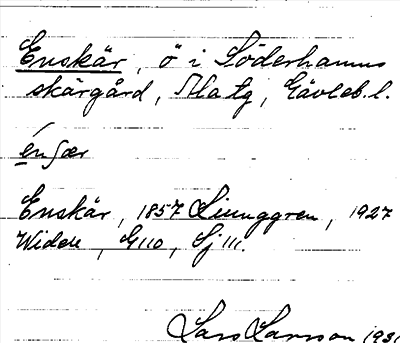 Enskär, ö i Söderhamns
skärgård, Ala tg, Gävleb. l.
énʃær
Enskär, 1857 Ljunggren, 1927
Widell, G110, Sj 111.
Lars Larsson 1931